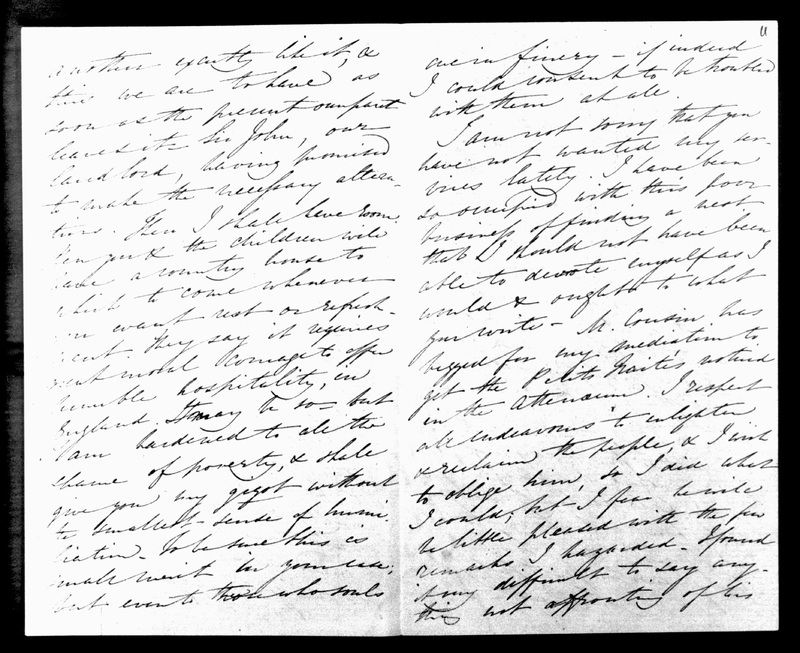 another exactly like it, &
this we are to have as
soon as the present occupant
leaves it - Sir John, our
landlord, having promised
to make the necessary altera-
tions. Then I shall have room,
then you & the children will
have a country house to
which to come whenever
you want rest or refresh-
ment. They say it requires
great moral courage to offer
humble hospitality, in
England, It may be so - but
I am hardened to all the
shame of poverty, & shall
give you my gigot without
the smallest sense of humi-
liation - To be sure this is
small merit in your case,
but even to those whose souls
11
are in finery - if indeed
I could consent to be troubled
with them at all.
I am not sorry that you
have not wanted my ser-
vices lately. I have been
so occupied with this poor
business of finding a nest
that I should not have been
able to devote myself as I
would & ought to what
you write - M. Cousin has
begged for my mediation to
get the Petits Traités noticed
in the Atheneum. I respect
all endeavours to enlighten
& reclaim the people, & I wish
to oblige him, so I did what
I could; but I fear he will
be little pleased with the few
remarks I hazarded - I found
it very difficult to say any-
thing not affronting of his